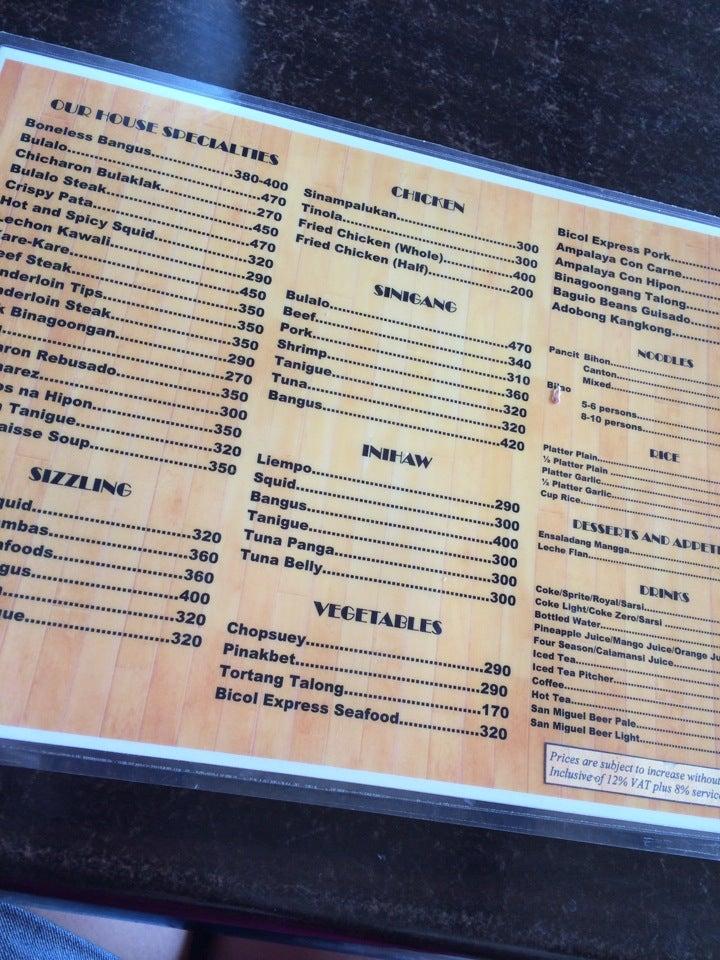 OUR HOUSE SPECIALTIES
Boneless Bangus 380-400
Bulalo 470
Chicharon Bulaklak 270
Bulalo Steak 450
Crispy Pata 470
Hot and Spicy Squid 320
Lechon Kawali 290
are-Kare 450
eef Steak 350
nderloin Tips 350
nderloin Steak 350
k Binagoongan 290
270
aron Rebusado 350
harez 300
os na Hipon 350
Tanigue 320
aisse Soup 350
SIZZLING
quid 320
mbas 360
afoods 360
gus 400
320
gue 320
CHICKEN
Sinampalukan 300
Tinola 300
Fried Chicken (Whole) 400
Fried Chicken (Half) 200
SINIGANG
Bulalo 470
Beef 340
Pork 310
Shrimp 360
Tanigue 320
Tuna 320
Bangus 420
INIHAW
Liempo 290
Squid 300
Bangus 400
Tanigue 300
Tuna Panga 300
Tuna Belly 300
VEGETABLES
Chopsuey 290
Pinakbet 290
Tortang Talong 170
Bicol Express Seafood 320
Bicol Express Pork
Ampalaya Con Carne
Ampalaya Con Hipon
Binagoongang Talong
Baguio Beans Guisado
Adobong Kangkong
NOODLES
Pancit Bihon
Canton
Mixed
Bilao
5-6 persons
8-10 persons
RICE
Platter Plain
½ Platter Plain
Platter Garlic
½ Platter Garlic
Cup Rice
DESSERTS AND APPETI
Ensaladang Mangga
Leche Flan
DRINKS
Coke/Sprite/Royal/Sarsi
Coke Light/Coke Zero/Sarsi
Bottled Water
Pineapple Juice/Mango Juice/Orange Ju
Four Season/Calamansi Juice
Iced Tea
Iced Tea Pitcher
Coffee
Hot Tea
San Miguel Beer Pale
San Miguel Beer Light
Prices are subject to increase without
Inclusive of 12% VAT plus 8% service